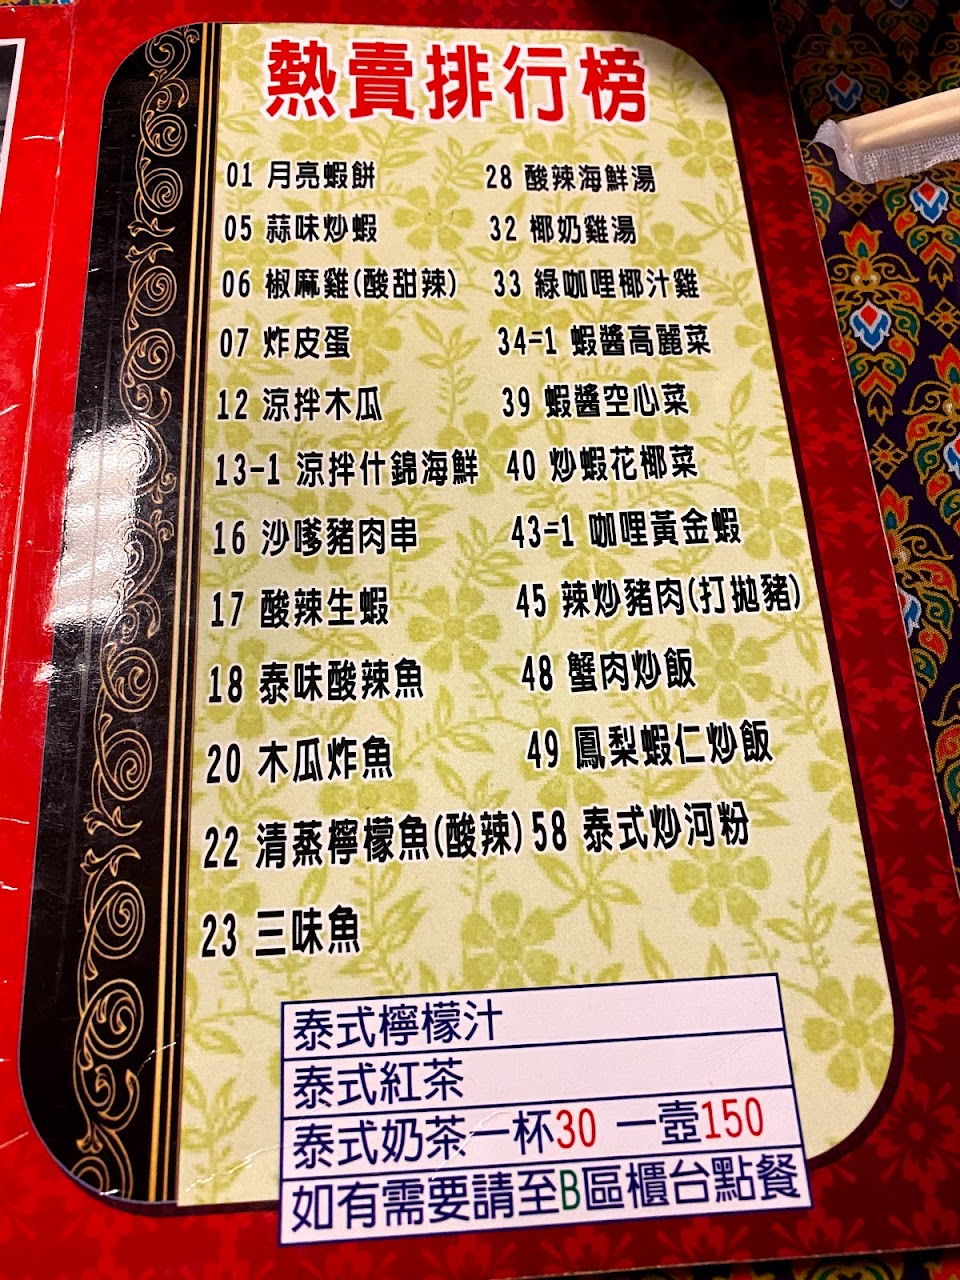 熱賣排行榜
01 月亮蝦餅
05 蒜味炒蝦
06 椒麻雞(酸甜辣)
07 炸皮蛋
12 涼拌木瓜
13-1 涼拌什錦海鮮
16 沙嗲豬肉串
17 酸辣生蝦
18 泰味酸辣魚
20 木瓜炸魚
22 清蒸檸檬魚(酸辣)
23 三味魚
28 酸辣海鮮湯
32 椰奶雞湯
33 綠咖哩椰汁雞
34-1 蝦醬高麗菜
39 蝦醬空心菜
40 炒蝦花椰菜
43-1 咖哩黃金蝦
45 辣炒豬肉(打拋豬)
48 蟹肉炒飯
49 鳳梨蝦仁炒飯
58 泰式炒河粉
泰式檸檬汁
泰式紅茶
泰式奶茶一杯30 一壺150
如有需要請至B區櫃台點餐